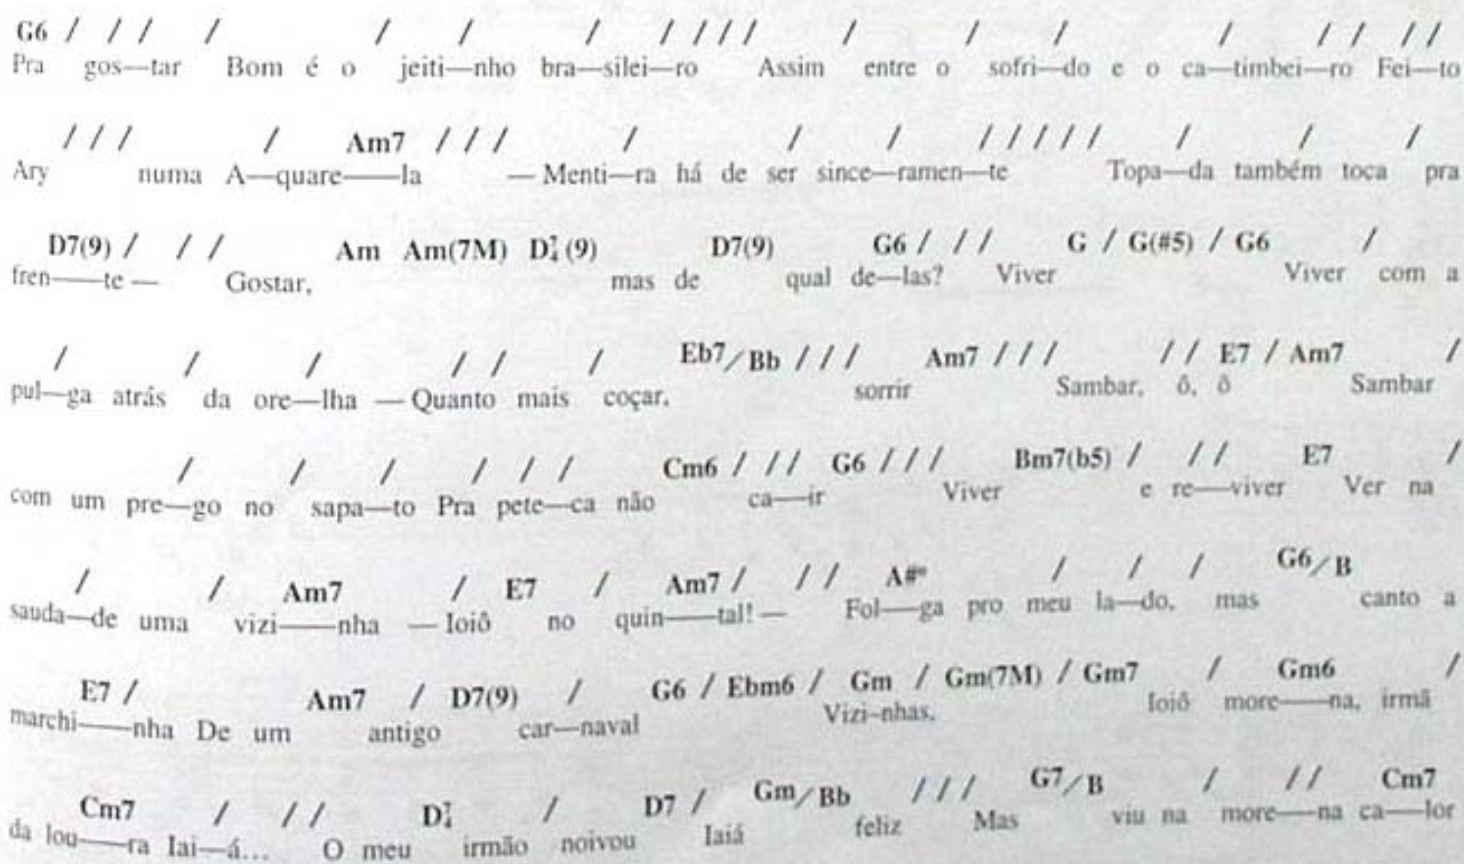 G6 / / / / / / / / / / / / / / / / / / /
Pra gos—tar Bom é o jeiti—nho bra—silei—ro Assim entre o sofri—do e o ca—timbei—ro Fei—to
/ / / / Am7 / / / / / / / / / / / / / /
Ary numa A—quare—la — Menti—ra há de ser since—ramen—te Topa—da também toca pra
D7(9) / / / Am Am(7M) D7/4(9) D7(9) G6 / / / G / G(#5) / G6 /
fren—te — Gostar, mas de qual de—las? Viver Viver com a
/ / / / / / Eb7/Bb / / / Am7 / / / / / E7 / Am7 /
pul—ga atrás da ore—lha — Quanto mais coçar, sorrir Sambar, ô, ô Sambar
/ / / / / / Cm6 / / / G6 / / / Bm7(b5) / / / E7 /
com um pre—go no sapa—to Pra pete—ca não ca—ir Viver e re—viver Ver na
/ / Am7 / E7 / Am7 / / / A#° / / / G6/B
sauda—de uma vizi—nha — Ioiô no quin—tal! — Fol—ga pro meu la—do, mas canto a
E7 / Am7 / D7(9) / G6 / Ebm6 / Gm / Gm(7M) / Gm7 / Gm6 /
marchi—nha De um antigo car—naval Vizi–nhas, Ioiô more—na, irmã
Cm7 / / / D7/4 / D7 / Gm/Bb / / / G7/B / / / Cm7
da lou—ra Iai—á... O meu irmão noivou Iaiá feliz Mas viu na more—na ca—lor